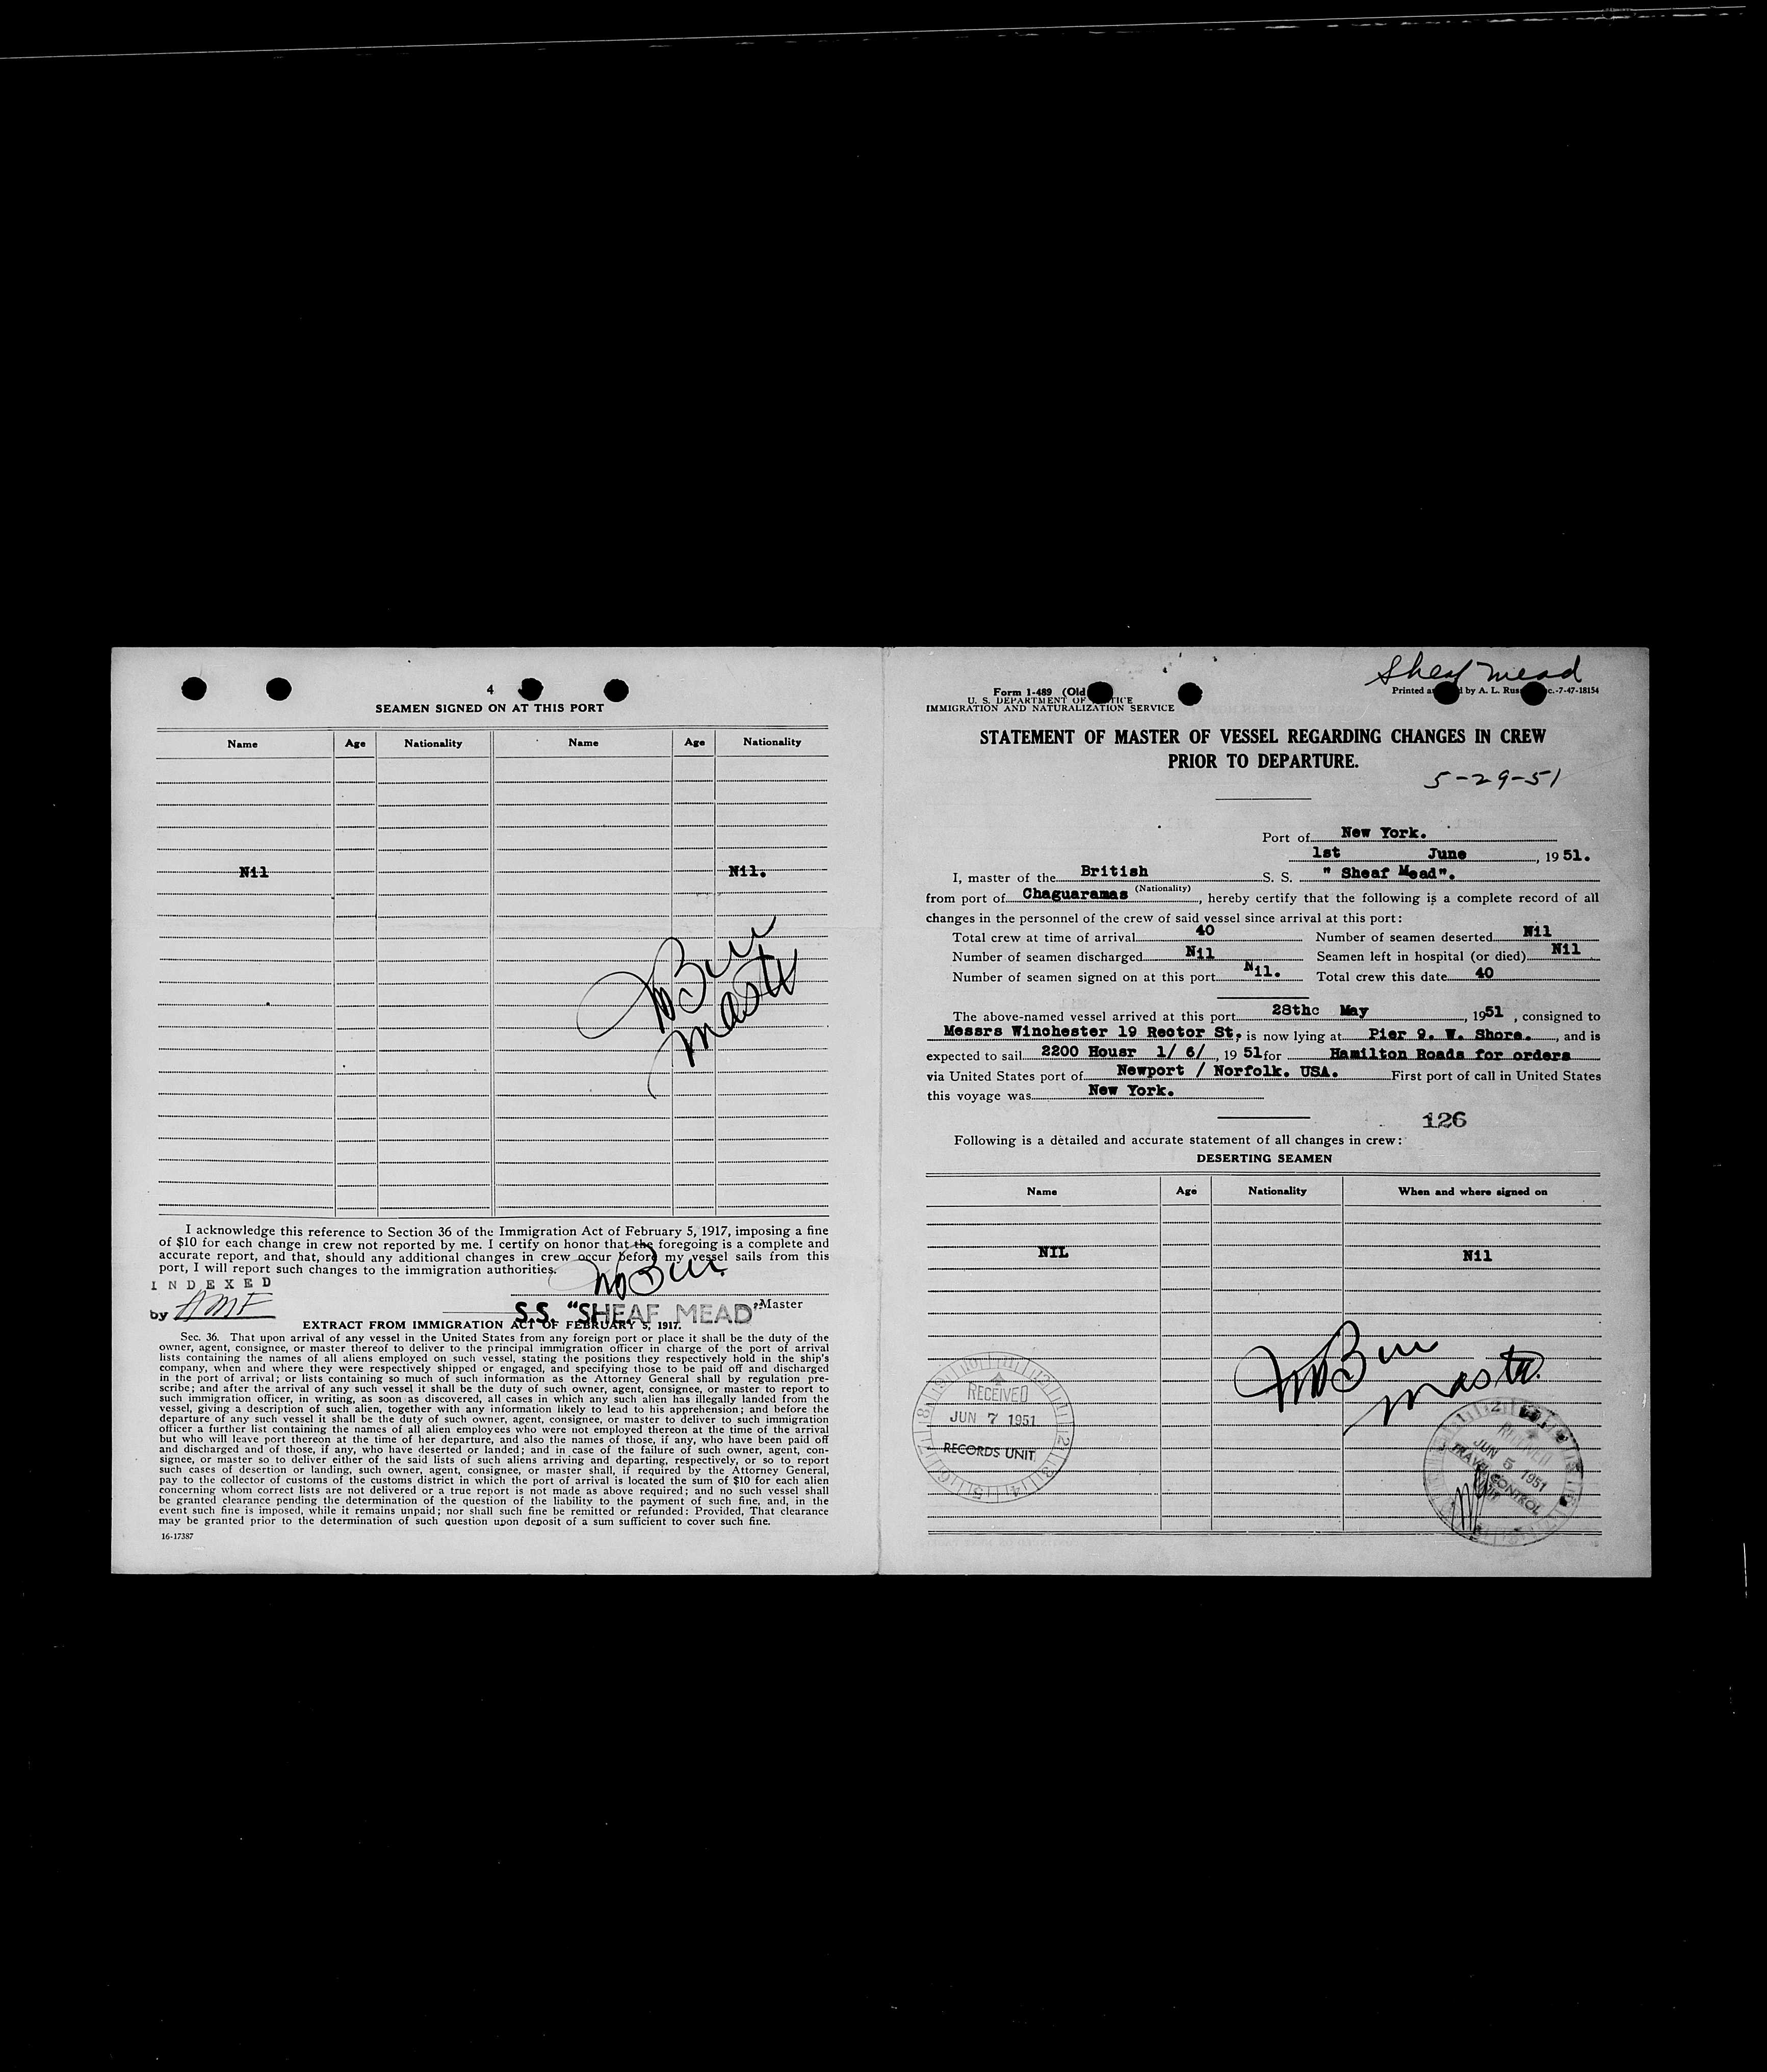 4
SEAMEN SIGNED ON AT THIS PORT
Name Age Nationality Name Age Nationality
Nil Nil.
Master
I acknowledge this reference to Section 36 of the Immigration Act of February 5, 1917, imposing a fine
of $10 for each change in crew not reported by me. I certify on honor that the foregoing is a complete and
accurate report, and that, should any additional changes in crew occur before my vessel sails from this
port, I will report such changes to the immigration authorities.
INDEXED
by AMF
S.S. "SHEAF MEAD" , Master
EXTRACT FROM IMMIGRATION ACT OF FEBRUARY 5, 1917.
Sec. 36. That upon arrival of any vessel in the United States from any foreign port or place it shall be the duty of the
owner, agent, consignee, or master thereof to deliver to the principal immigration officer in charge of the port of arrival
lists containing the names of all aliens employed on such vessel, stating the positions they respectively hold in the ship's
company, when and where they were respectively shipped or engaged, and specifying those to be paid off and discharged
in the port of arrival; or lists containing so much of such information as the Attorney General shall by regulation pre-
scribe; and after the arrival of any such vessel it shall be the duty of such owner, agent, consignee, or master to report to
such immigration officer, in writing, as soon as discovered, all cases in which any such alien has illegally landed from the
vessel, giving a description of such alien, together with any information likely to lead to his apprehension; and before the
departure of any such vessel it shall be the duty of such owner, agent, consignee, or master to deliver to such immigration
officer a further list containing the names of all alien employees who were not employed thereon at the time of the arrival
but who will leave port thereon at the time of her departure, and also the names of those, if any, who have been paid off
and discharged and of those, if any, who have deserted or landed; and in case of the failure of such owner, agent, con-
signee, or master so to deliver either of the said lists of such aliens arriving and departing, respectively, or so to report
such cases of desertion or landing, such owner, agent, consignee, or master shall, if required by the Attorney General,
pay to the collector of customs of the customs district in which the port of arrival is located the sum of $10 for each alien
concerning whom correct lists are not delivered or a true report is not made as above required; and no such vessel shall
be granted clearance pending the determination of the question of the liability to the payment of such fine, and, in the
event such fine is imposed, while it remains unpaid; nor shall such fine be remitted or refunded: Provided, That clearance
may be granted prior to the determination of such question upon deposit of a sum sufficient to cover such fine.
16-17387
Sheaf Mead
Form I-489 (Old
Printed a d by A. L. Rus c.-7-47-18154
U. S. DEPARTMENT OF JUSTICE
IMMIGRATION AND NATURALIZATION SERVICE
STATEMENT OF MASTER OF VESSEL REGARDING CHANGES IN CREW
PRIOR TO DEPARTURE.
5-29-51
Port of New York.
1st June , 1951.
I, master of the British S. S. " Sheaf Mead".
(Nationality)
from port of Chaguaramas , hereby certify that the following is a complete record of all
changes in the personnel of the crew of said vessel since arrival at this port:
Total crew at time of arrival 40 Number of seamen deserted Nil
Number of seamen discharged Nil Seamen left in hospital (or died) Nil
Number of seamen signed on at this port Nil. Total crew this date 40
The above-named vessel arrived at this port 28thc May , 1951 , consigned to
Messrs Winchester 19 Rector St, is now lying at Pier 9. W. Shore. , and is
expected to sail 2200 Housr 1/ 6/ , 1951 for Hamilton Roads for orders
via United States port of Newport / Norfolk. USA. First port of call in United States
this voyage was New York.
126
Following is a detailed and accurate statement of all changes in crew:
DESERTING SEAMEN
Name Age Nationality When and where signed on
NIL Nil
Master
RECEIVED
JUN 7 1951
RECORDS UNIT
RECEIVED
JUN 5 1951
TRAVEL CONTROL
UNIT